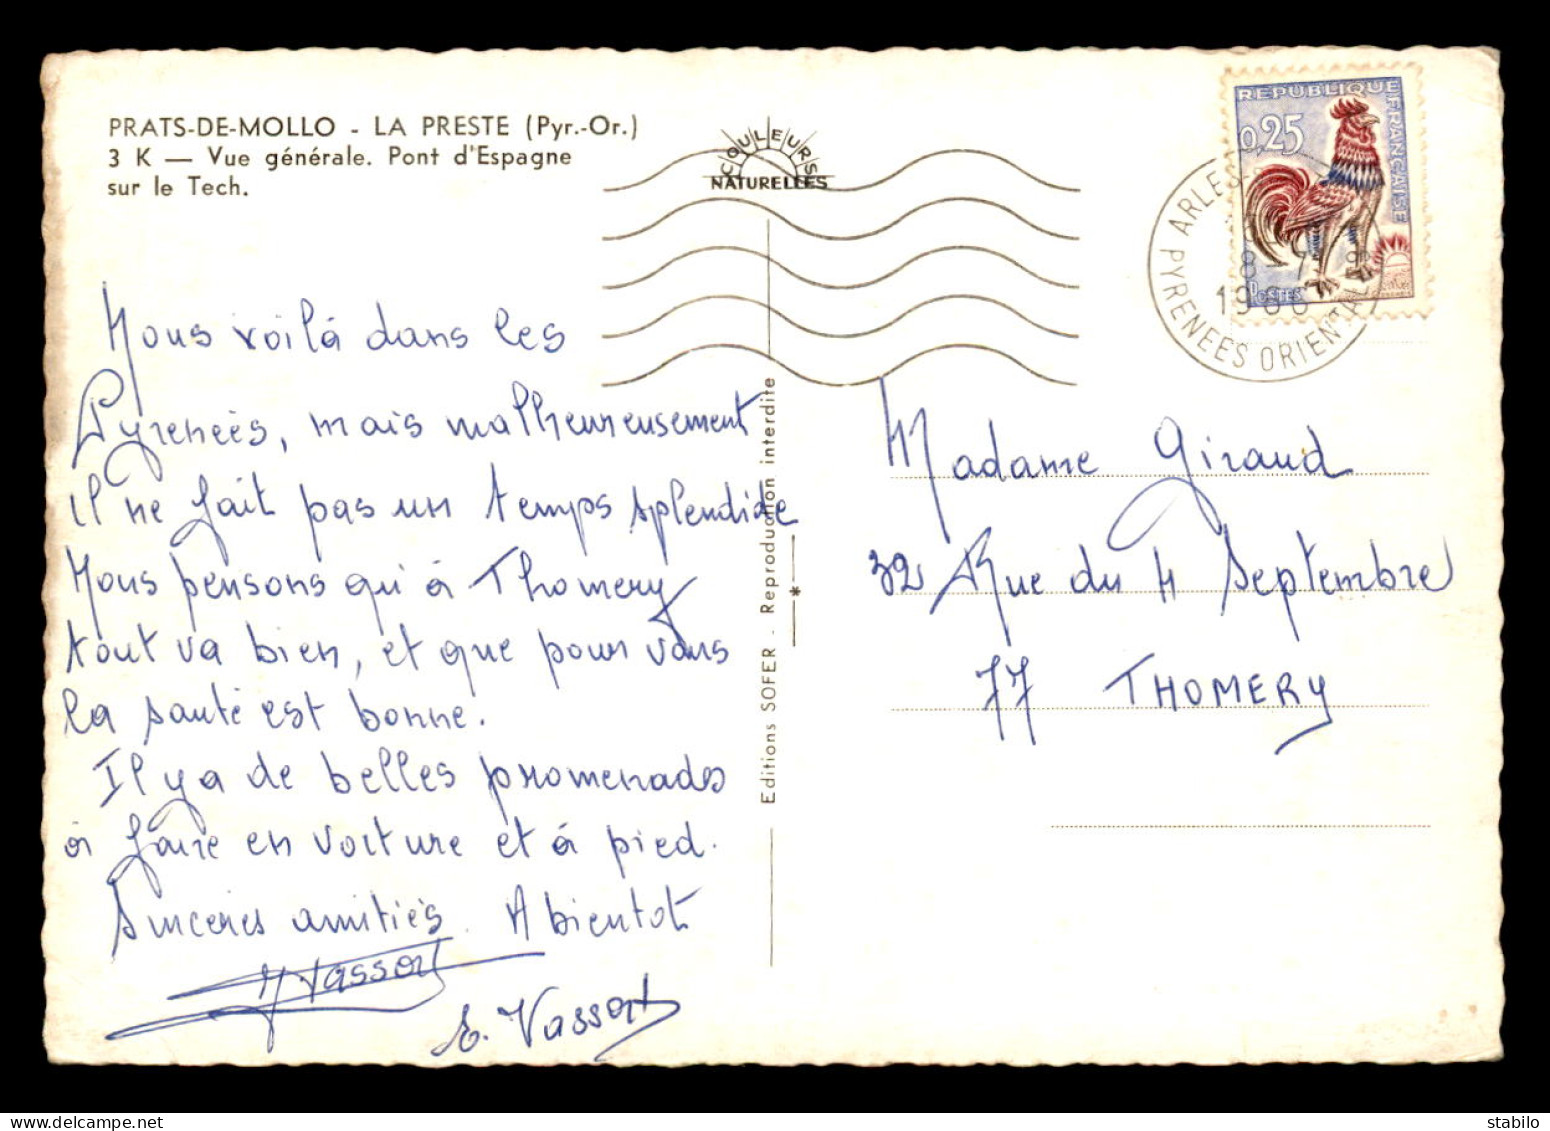 PRATS-DE-MOLLO - LA PRESTE (Pyr.-Or.)
3 K — Vue générale. Pont d'Espagne
sur le Tech.
COULEURS
NATURELLES
REPUBLIQUE
FRANÇAISE
0,25
POSTES
ARLES
8-7
PYRENEES ORIENTALES
Nous voilà dans les
Pyrenées, mais malheureusement
il ne fait pas un temps splendide
Nous pensons qui à Thomery
tout va bien, et que pour vous
la santé est bonne.
Il y a de belles promenades
à faire en voiture et à pied.
Sincères amitiés. A bientot
Vassort
E. Vassort
Editions SOFER - Reproduction interdite
Madame Giraud
32 Rue du 4 Septembre
77 THOMERY
stabilo